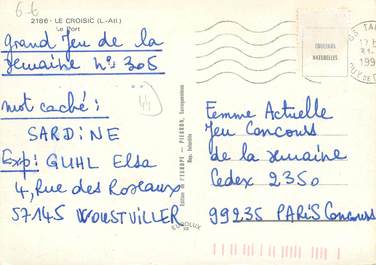 6.6
2186 - LE CROISIC (L.-Atl.)
Le Port
Grand Jeu de la
semaine N° 305
mot caché :
44
SARDINE
Exp: GUHL Elsa
4, Rue des Roseaux
57145 WOUSTVILLER
COULEURS
NATURELLES
Femme Actuelle
Jeu Concours
de la semaine
Cedex 2350
99235 PARIS Concours
EUROLUX